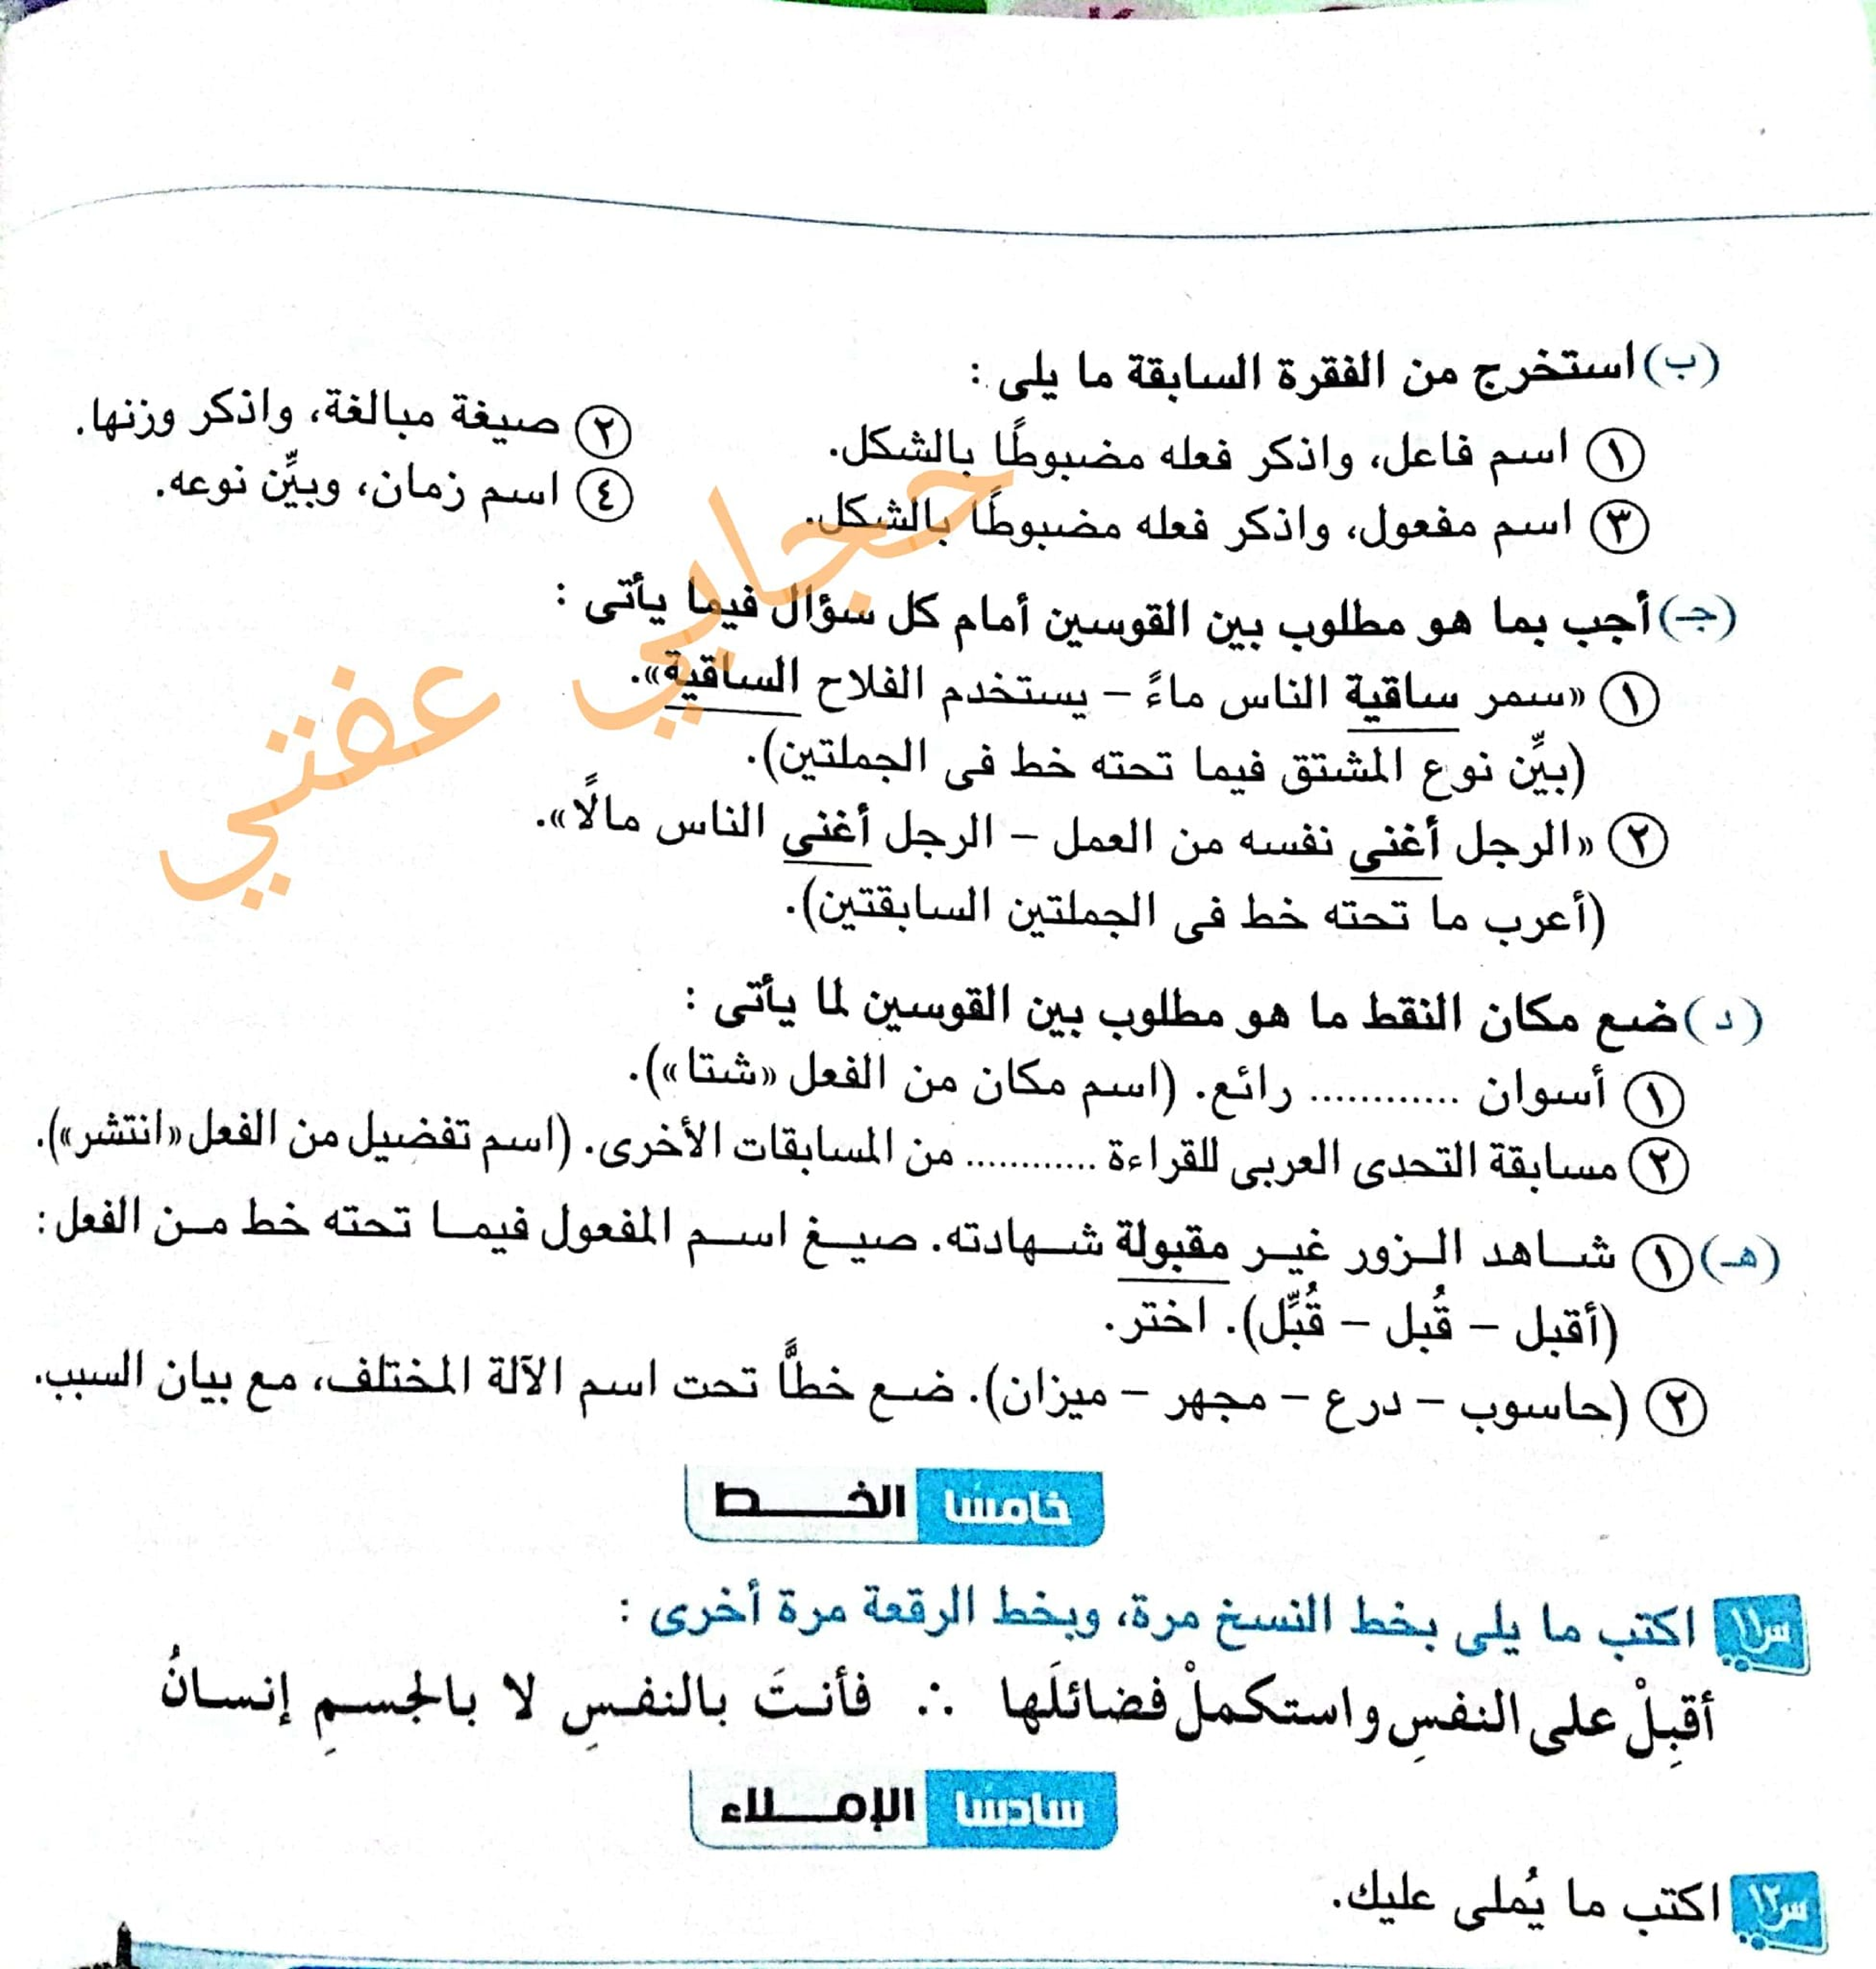 (ب) استخرج من الفقرة السابقة ما يلى :
١ اسم فاعل، واذكر فعله مضبوطًا بالشكل.
٢ صيغة مبالغة، واذكر وزنها.
٣ اسم مفعول، واذكر فعله مضبوطًا بالشكل.
٤ اسم زمان، وبيِّن نوعه.
(جـ) أجب بما هو مطلوب بين القوسين أمام كل سؤال فيما يأتى :
١ «سمر ساقية الناس ماءً – يستخدم الفلاح الساقية».
(بيِّن نوع المشتق فيما تحته خط فى الجملتين).
٢ «الرجل أغنى نفسه من العمل – الرجل أغنى الناس مالًا».
(أعرب ما تحته خط فى الجملتين السابقتين).
حجابي عفتي
(د) ضع مكان النقط ما هو مطلوب بين القوسين لما يأتى :
١ أسوان ............ رائع. (اسم مكان من الفعل «شتا»).
٢ مسابقة التحدى العربى للقراءة ............ من المسابقات الأخرى. (اسم تفضيل من الفعل «انتشر»).
(هـ) ١ شاهد الزور غير مقبولة شهادته. صيغ اسم المفعول فيما تحته خط من الفعل :
(أقبل – قُبل – قُبِّل). اختر.
٢ (حاسوب – درع – مجهر – ميزان). ضع خطًّا تحت اسم الآلة المختلف، مع بيان السبب.
خامسًا الخـــط
س١١ اكتب ما يلى بخط النسخ مرة، وبخط الرقعة مرة أخرى :
أقبِلْ على النفسِ واستكملْ فضائلَها ∴ فأنتَ بالنفسِ لا بالجسمِ إنسانُ
سادسًا الإمـــلاء
س١٢ اكتب ما يُملى عليك.